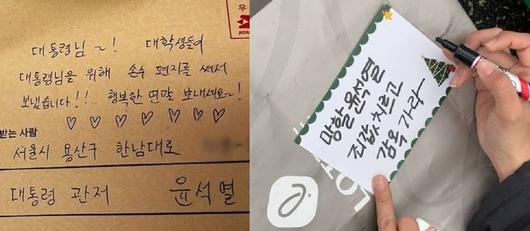 우
KOR
대통령님~! 대학생들이
대통령님을 위해 손수 편지를 써서
보냈습니다!! 행복한 연말 보내세요~!
♡ ♡ ♡ ♡ ♡ ♡ ♡
받는 사람
서울시 용산구 한남대로
대통령 관저 윤석열
망할 윤석열
죄값 치르고
감옥 가라